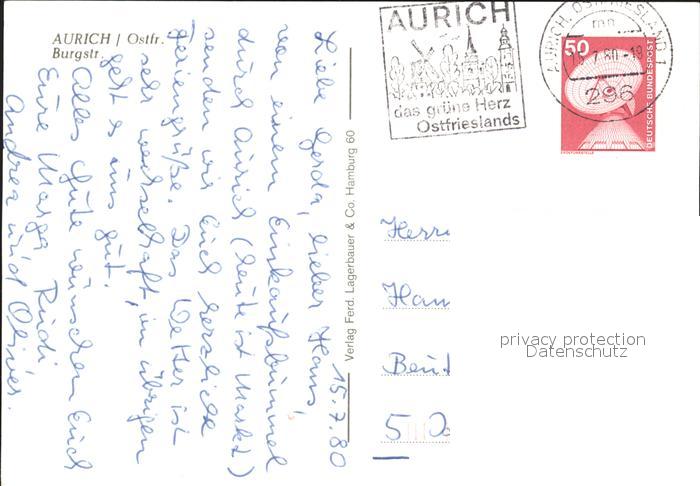 AURICH / Ostfr.
Burgstr.
15.7.80
Liebe Gerda, lieber Hans,
von einem Einkaufsbummel
durch Aurich (heute ist Markt)
senden wir Euch herzliche
Feriengrüße. Das Wetter ist
sehr wechselhaft, im übrigen
geht's uns gut.
Alles Gute wünschen Euch
Eure Marga Rudi
Andrea und Oliver.
Verlag Ferd. Lagerbauer & Co. Hamburg 60
AURICH
das grüne Herz
Ostfrieslands
AURICH, OSTFRIESLAND 1
mn
15.7.80-18
296
50
DEUTSCHE BUNDESPOST
ERDFUNKSTELLE
Herrn
Han
privacy protection
Datenschutz
50